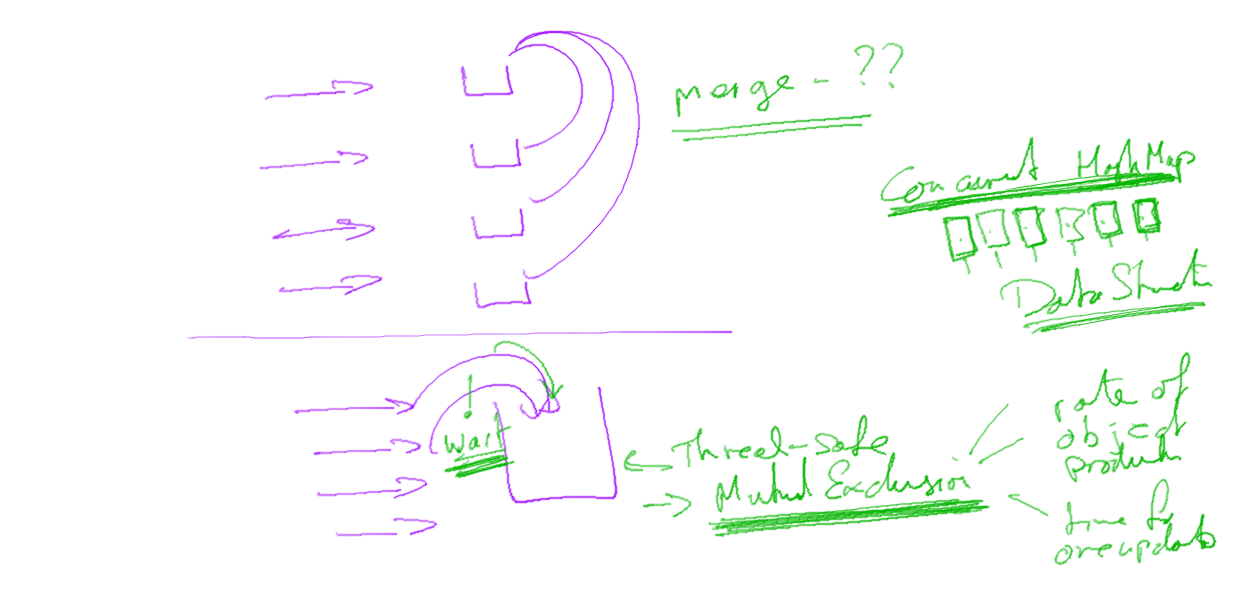 merge - ??
Concurrent HashMap
Data Struct
wait
Thread-safe
Mutual Exclusion
rate of
object
production
time for
one update